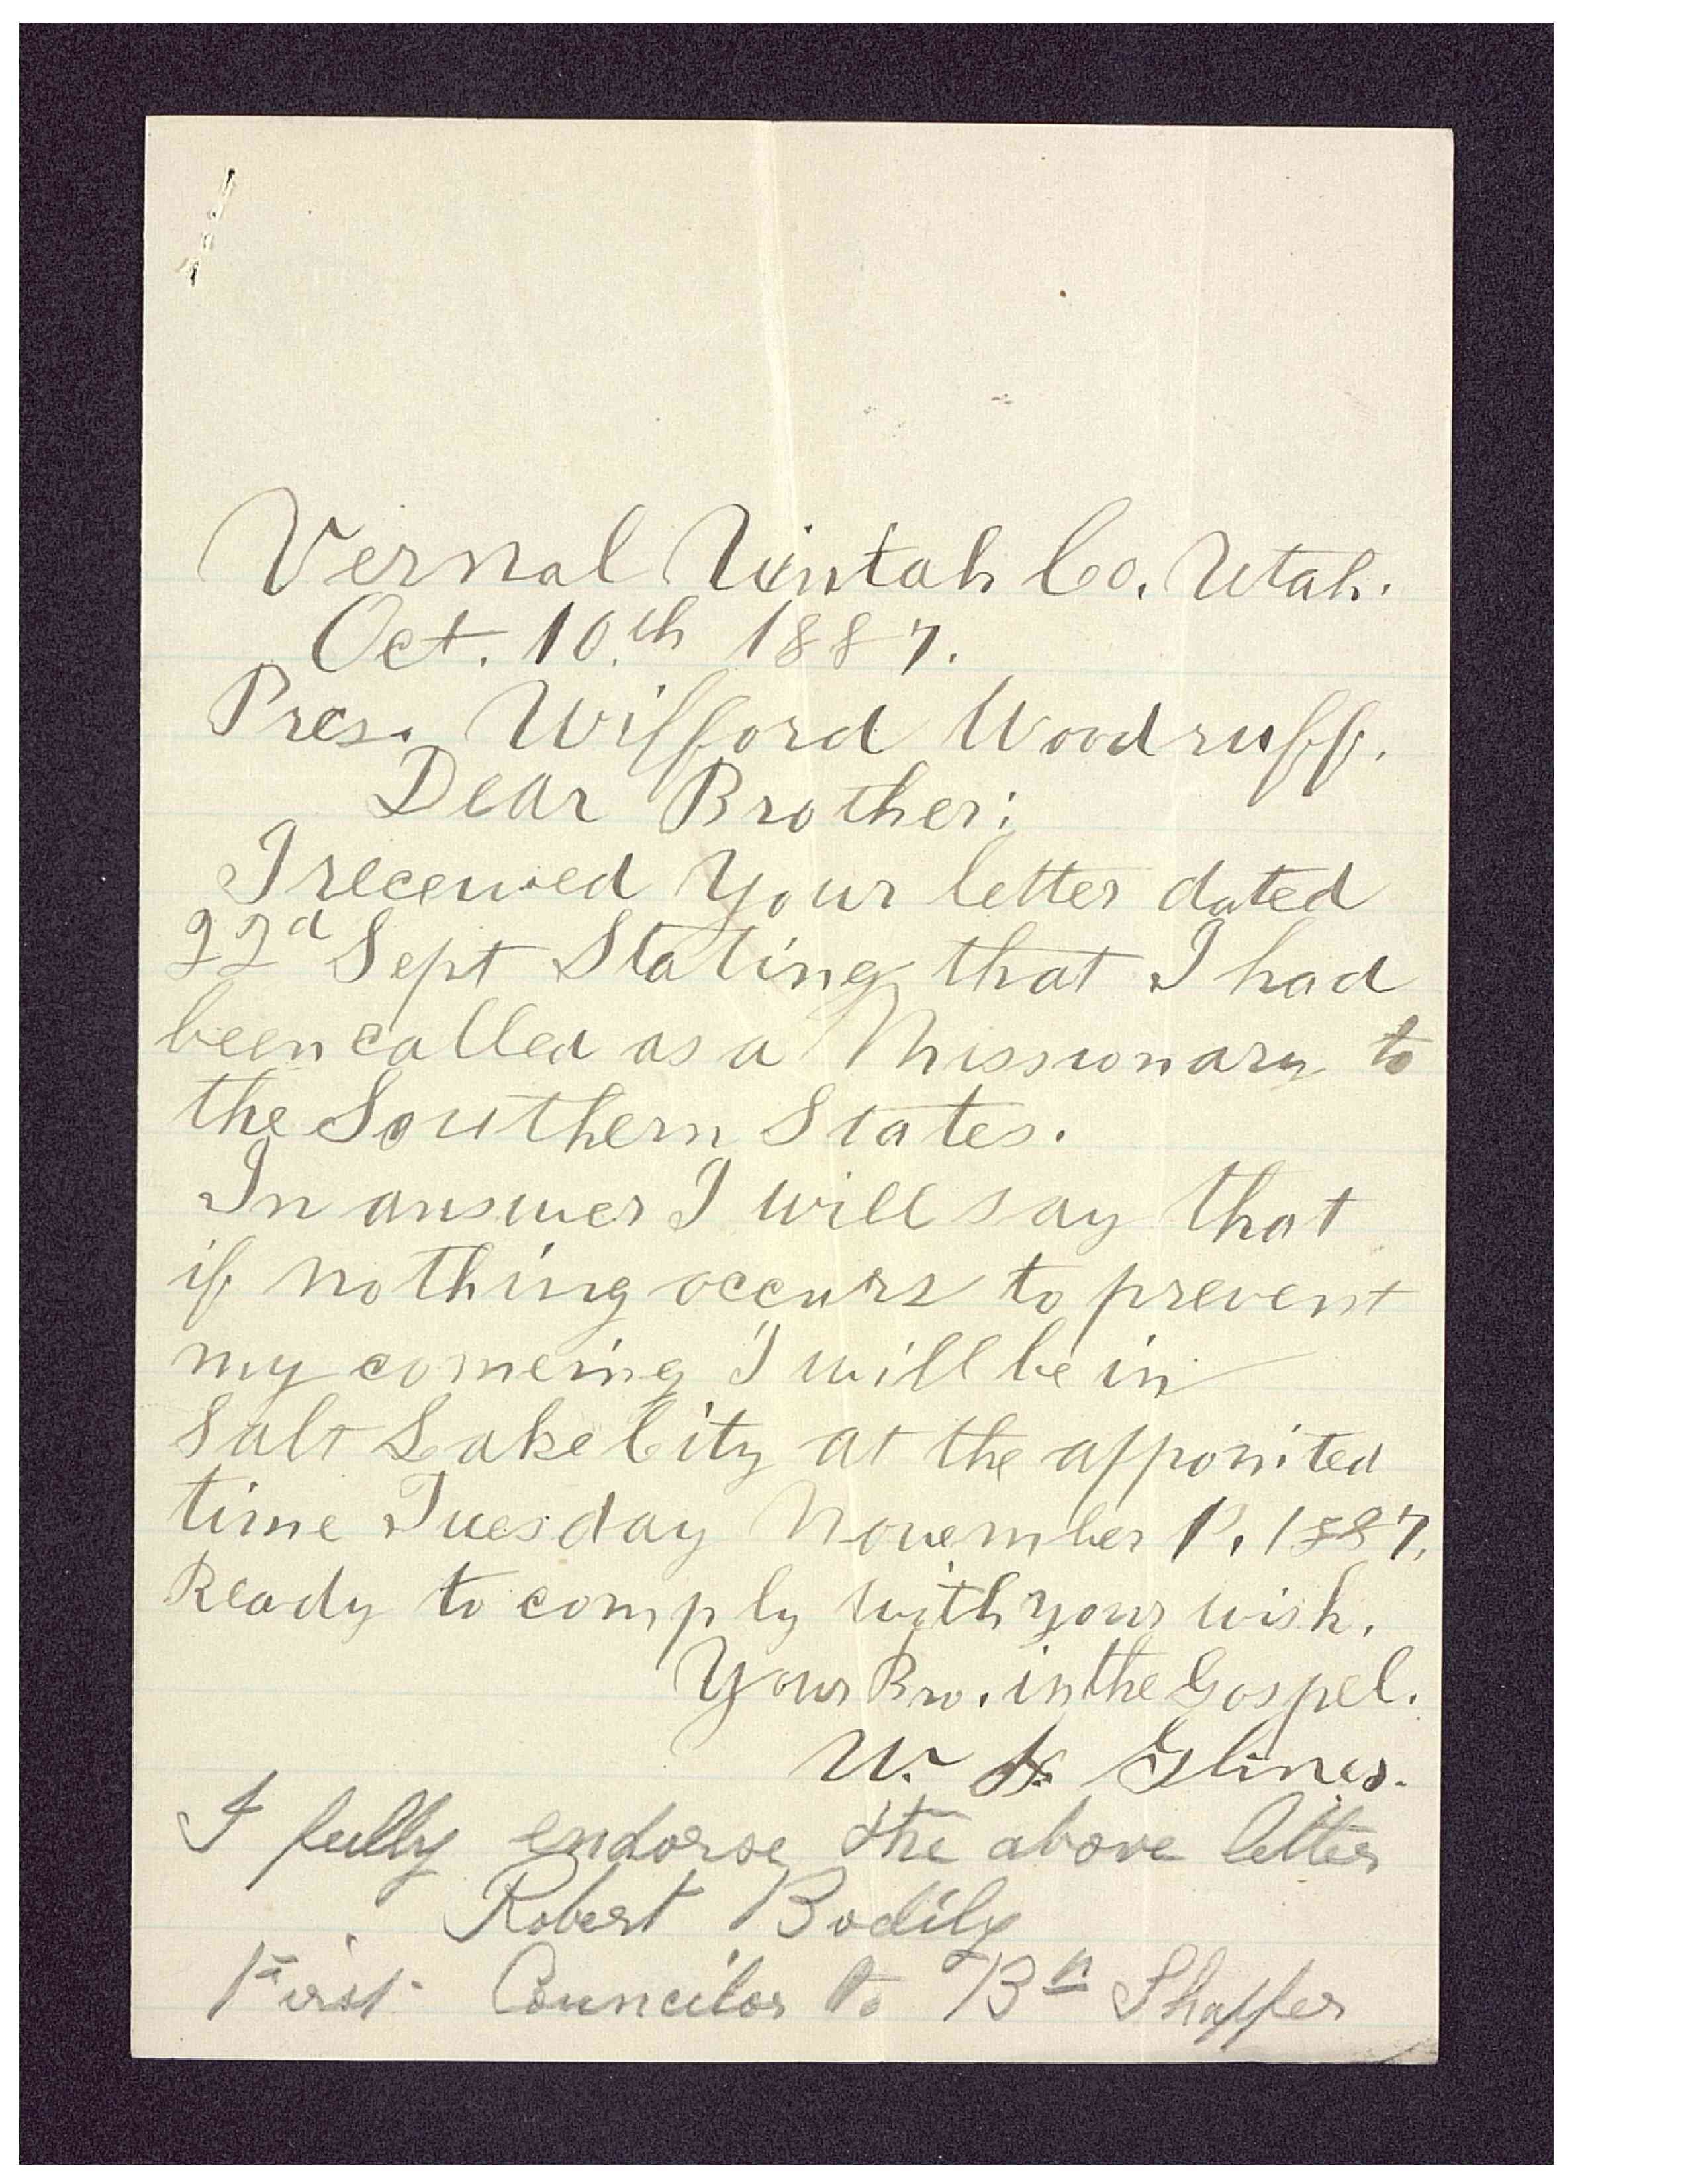 Vernal Uintah Co. Utah.
Oct. 10.th 1887.
Pres. Wilford Woodruff.
Dear Brother:
I received your letter dated
22d Sept Stating that I had
been called as a Missionary to
the Southern States.
In answer I will say that
if nothing occurs to prevent
my comeing I will be in
Salt Lake City at the appointed
time Tuesday November 1st. 1887.
Ready to comply with your wish.
Your Bro. in the Gospel.
W. H. Glines.
I fully endorse the above letter
Robert Bodily
First Councilor to Bp Shaffer